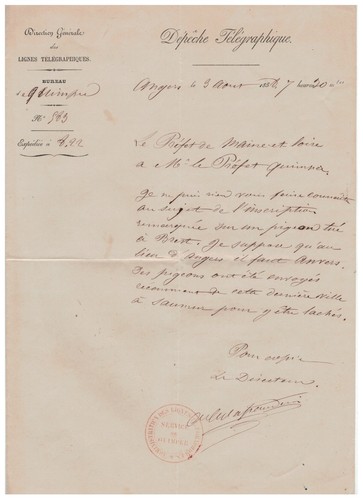 Direction Générale
des
LIGNES TÉLÉGRAPHIQUES.
BUREAU
de Quimper
N.° 563
Expédiée à 8.22
Dépêche Télégraphique.
Angers le 3 Aout 185 7 heures 20
Le Préfet de Maine et loire
à Mr. le Préfet Quimper
Je ne puis rien vous faire connaitre
au sujet de l'inscription
remarquée sur son pigeon tué
à Brest. Je suppose qu'au
lieu d'Angers il faut Anvers.
Des pigeons ont été envoyés
recemment de cette dernière ville
à Saumur pour y être lachés.
Pour copie
Le Directeur